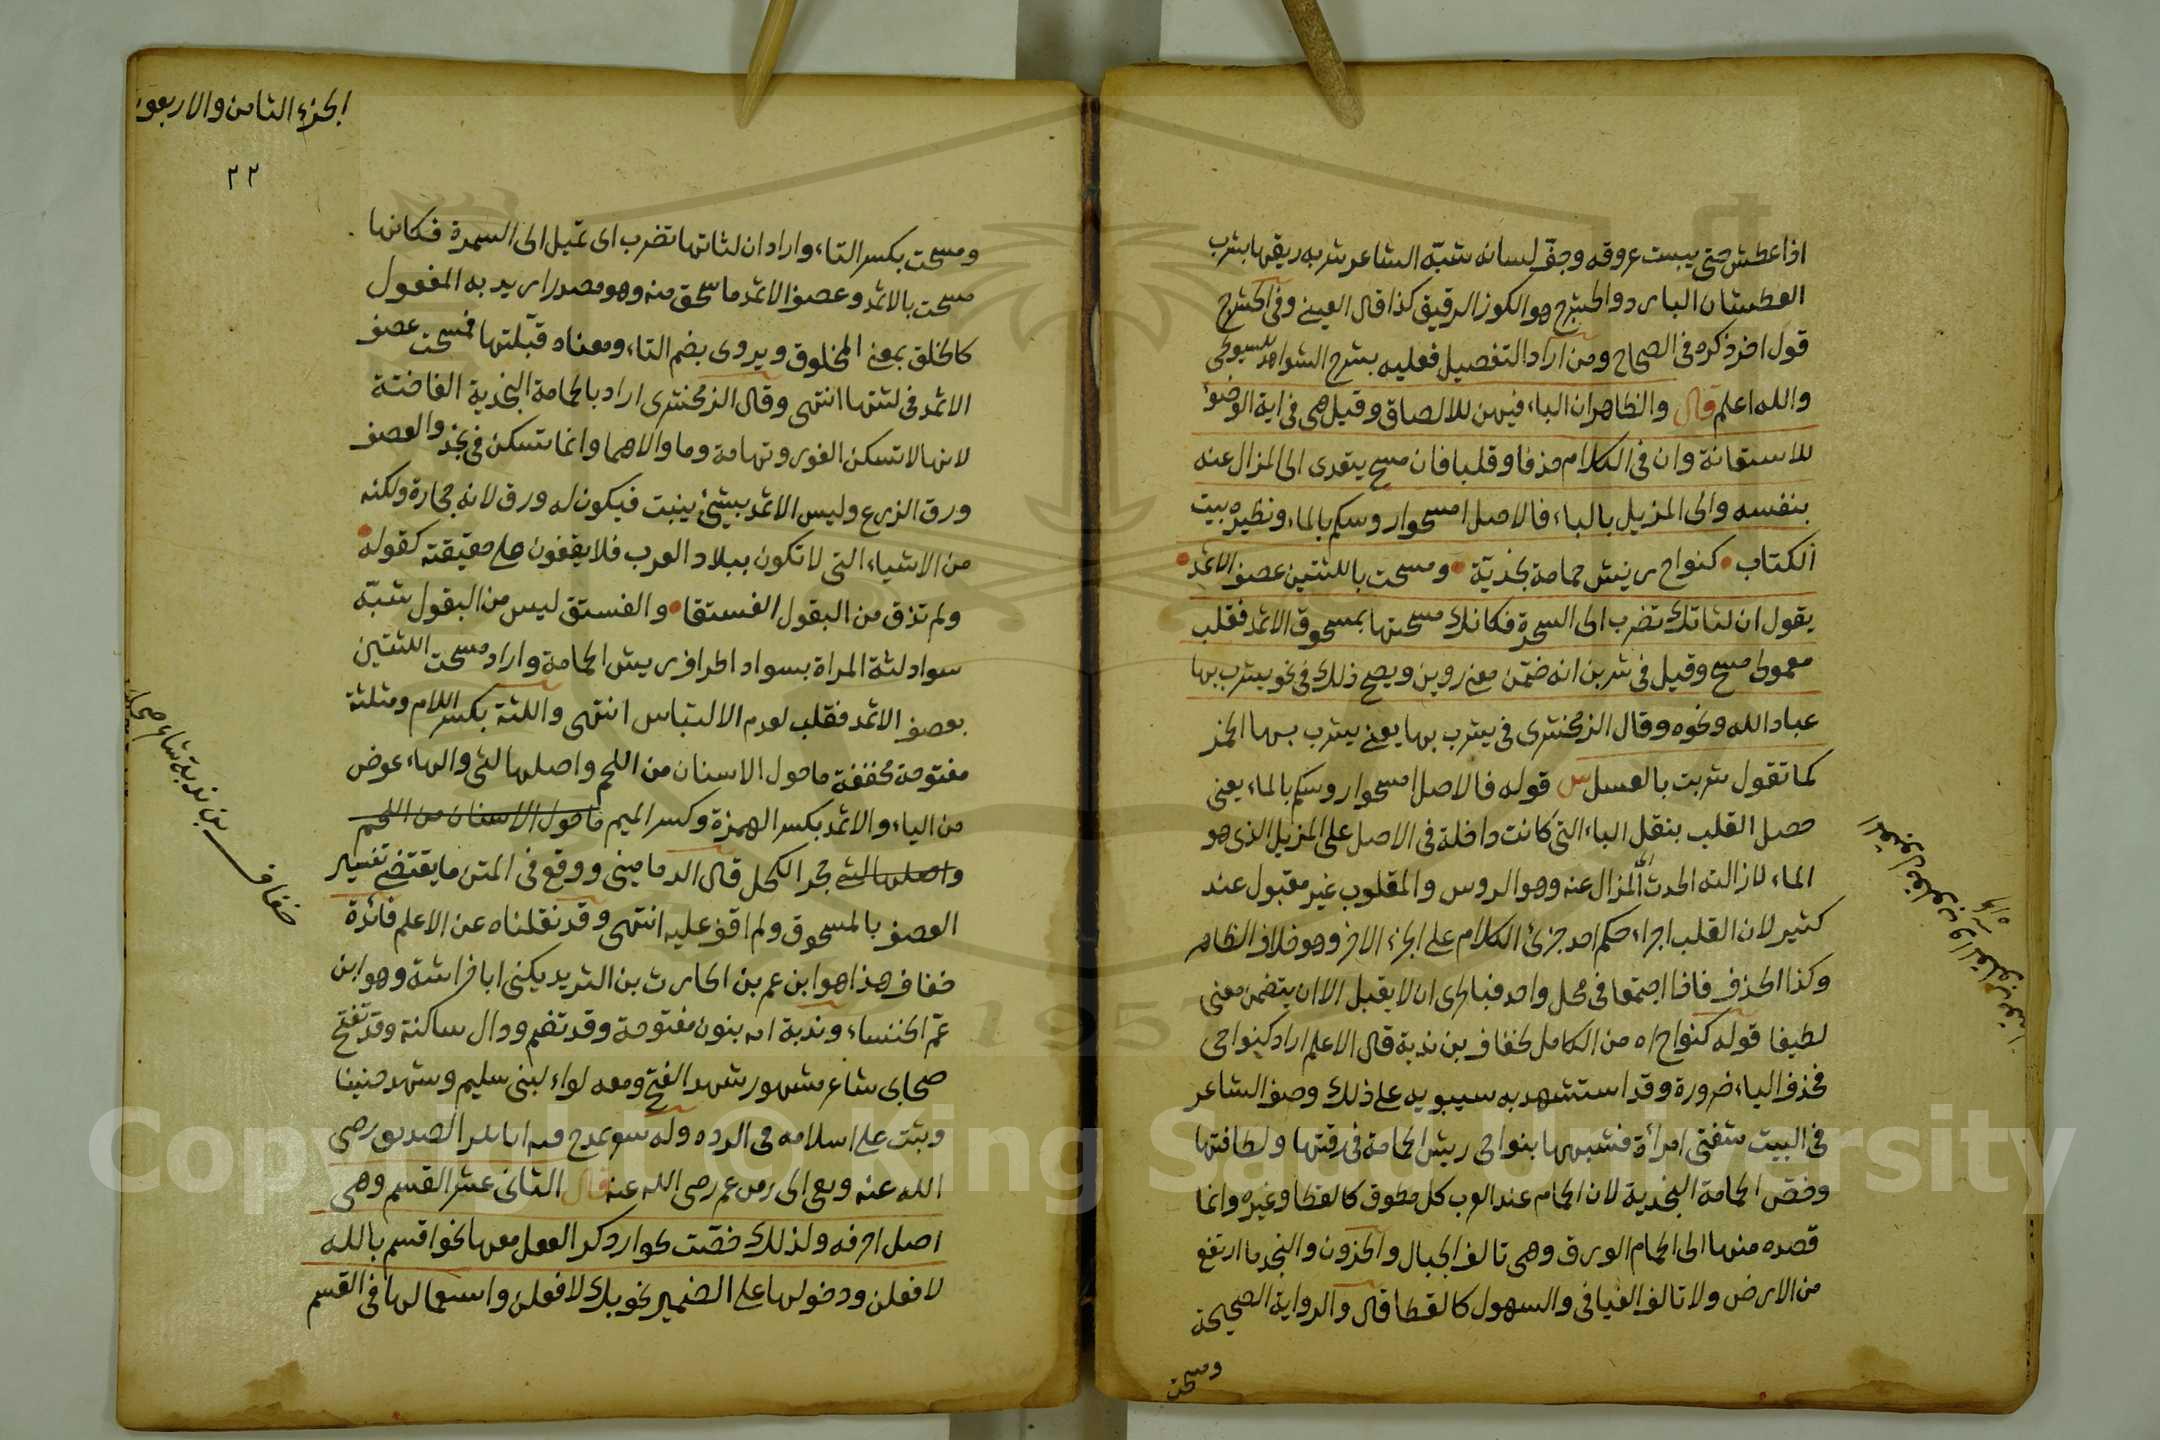 اذا عطش حتى يبست عروقه وجف لسانه شبّه الشاعر شربه ريقها بشرب
العطشان البارد والحشرج هو الكوز الرقيق كذا قال العيني وفي الحشرج
قول اخر ذكره في الصحاح ومن اراد التفصيل فعليه بشرح الشواهد للسيوطي
والله اعلم قال والظاهر ان الباء فيهن للالصاق وقيل هي في اية الوضوء
للاستعانة وان في الكلام حذفا وقلبا فان مسح يتعدى الى المزال عنه
بنفسه والى المزيل بالباء فالاصل امسحوا روسكم بالماء ونظيره بيت
الكتاب • كنواح ريش حمامة نجديّة • ومسحت باللثتين عصف الاثمد •
يقول ان لثاتك تضرب الى السمرة فكانك مسحتها بمسحوق الاثمد فقلب
معمولي مسح وقيل في شربن انه ضمّن معنى روين ويصح ذلك في نحو يشرب بها
عباد الله ونحوه وقال الزمخشري في يشرب بها يعني يشرب بها الخمر
كما تقول شربت بالعسل س قوله فالاصل امسحوا روسكم بالماء يعني
حصل القلب بنقل الباء التي كانت داخلة في الاصل على المزيل الذي هو
الماء لازالته الحدث الى المزال عنه وهو الروس والمقلوب غير مقبول عند
كثير لان القلب اجراء حكم احد جزئ الكلام على الجزء الاخر وهو خلاف الظاهر
وكذا الحذف فاذا اجتمعا في محل واحد فبالحرى ان لا يقبل الا ان يتضمن معنى
لطيفا قوله كنواح اه من الكامل لخفاف بن ندبة قال الاعلم اراد كنواحى
فحذف الياء ضرورة وقد استشهد به سيبويه على ذلك وصف الشاعر
في البيت شفتى امرأة فشبهها بنواحى ريش الحمامة في رقتها ولطافتها
وخص الحمامة النجدية لان الحمام عند العرب كل مطوق كالقطا وغيره وانما
قصده منها الى الحمام الورق وهي تالف الجبال والحزون والنجد ما ارتفع
من الارض ولا تالف الفيافى والسهول كالقطا قال والرواية الصحيحة
ومسحت
الجزء الثامن والاربعون
٢٢
ومسحت بكسر التاء واراد ان لثاتها تضرب اى تميل الى السمرة فكانها
مسحت بالاثمد وعصف الاثمد ما سحق منه وهو مصدر اريد به المفعول
كالخلق بمعنى المخلوق ويروى بضم التاء ومعناه قبّلتها فمسحت عصف
الاثمد في لثتها انتهى وقال الزمخشرى اراد بالحمامة النجدية الفاختة
لانها لا تسكن الغور وتهامة وما والاهما وانما تسكن في نجد والعصف
ورق الزرع وليس الاثمد بشئ ينبت فيكون له ورق لانه حجارة ولكنه
من الاشياء التى لا تكون ببلاد العرب فلا يقفون على حقيقته كقوله •
ولم تذق من البقول الفستقا • والفستق ليس من البقول شبّه
سواد لثة المراة بسواد اطراف ريش الحمامة واراد مسحت اللثتين
بعصف الاثمد فقلب لعدم الالتباس انتهى واللثة بكسر اللام ومثلثة
مفتوحة مخففة ماحول الاسنان من اللحم واصلها لثي والهاء عوض
من الياء والاثمد بكسر الهمزة وكسر الميم ماحول الاسنان من اللحم
واصلها لثي حجر الكحل قال الدمامينى ووقع في المتن ما يقتضى تفسير
العصف بالمسحوق ولم اقف عليه انتهى وقد نقلناه عن الاعلم فائدة
خفاف هذا هو ابن عم بن الحارث بن الشريد يكنى ابا خراشة وهو ابن
عمّ الخنساء وندبة امه بنون مفتوحة وقد تضم ودال ساكنة وقد تفتح
صحابى شاعر مشهور شهد الفتح ومعه لواء لبنى سليم وشهد حنينا
وثبت على اسلامه في الرده وله شعر يمدح فيه ابا بكر الصديق رضى
الله عنه وبقى الى زمن عمر رضى الله عنه قال الثانى عشر القسم وهى
اصل احرفه ولذلك خصّت بجواز ذكر الفعل معها نحو اقسم بالله
لافعلن ودخولها على الضمير نحو بك لافعلن واستعمالها في القسم
خفاف بن ندبة شاعر صحابي
Copyright © King Saud University
1957